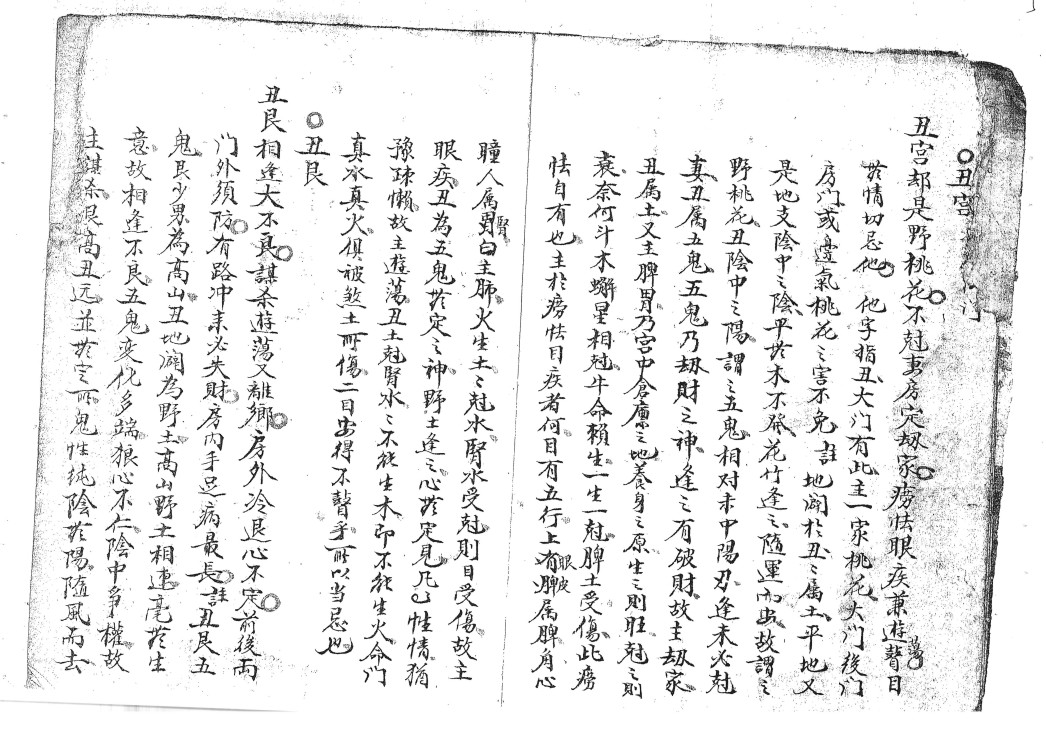 丑宮
丑宮却是野桃花不尅事房定刼家癆怯眼疾兼遊蕩瞽目
於情切忌他 他字指丑大门有此主一家桃花大门後门
房门或邊氣桃花之害不免 註 地闢於丑〻属土平地又
是地支陰中之陰平於木不發花竹逢之隨運而出故謂之
野桃花丑陰中之陽謂之五鬼相对未中陽刃逢未必尅
妻丑属五鬼五鬼乃刼財之神逢之有破財故主刼家
丑属土又主脾胃乃宮中倉廩之地養身之原生之則旺尅之則
衰奈何斗木獬星相尅牛命賴生一生一尅脾土受傷此癆
怯自有也主於癆怯目疾者何目有五行上眼皮属脾角心
瞳人属腎白主肺火生土〻尅水腎水受尅則目受傷故主
眼疾丑為五鬼於定之神野土逢之心於定見乃己性情猶
豫疎懶故主遊蕩丑土尅腎水〻不能生木卽不能生火命门
真水真火俱被煞土所傷二目安得不瞽乎所以当忌也
丑艮
丑艮相逢大不良謀杀遊蕩又離鄉房外冷退心不定前後两
门外須防有路冲来必失財房内手足病最長 註 丑艮五
鬼艮少男為高山丑地闢為野土高山野土相連毫於生
意故相逢不良五鬼变化多端狠心不仁陰中爭權故
主謀杀艮高丑远並於定所鬼性純陰於陽隨風而去